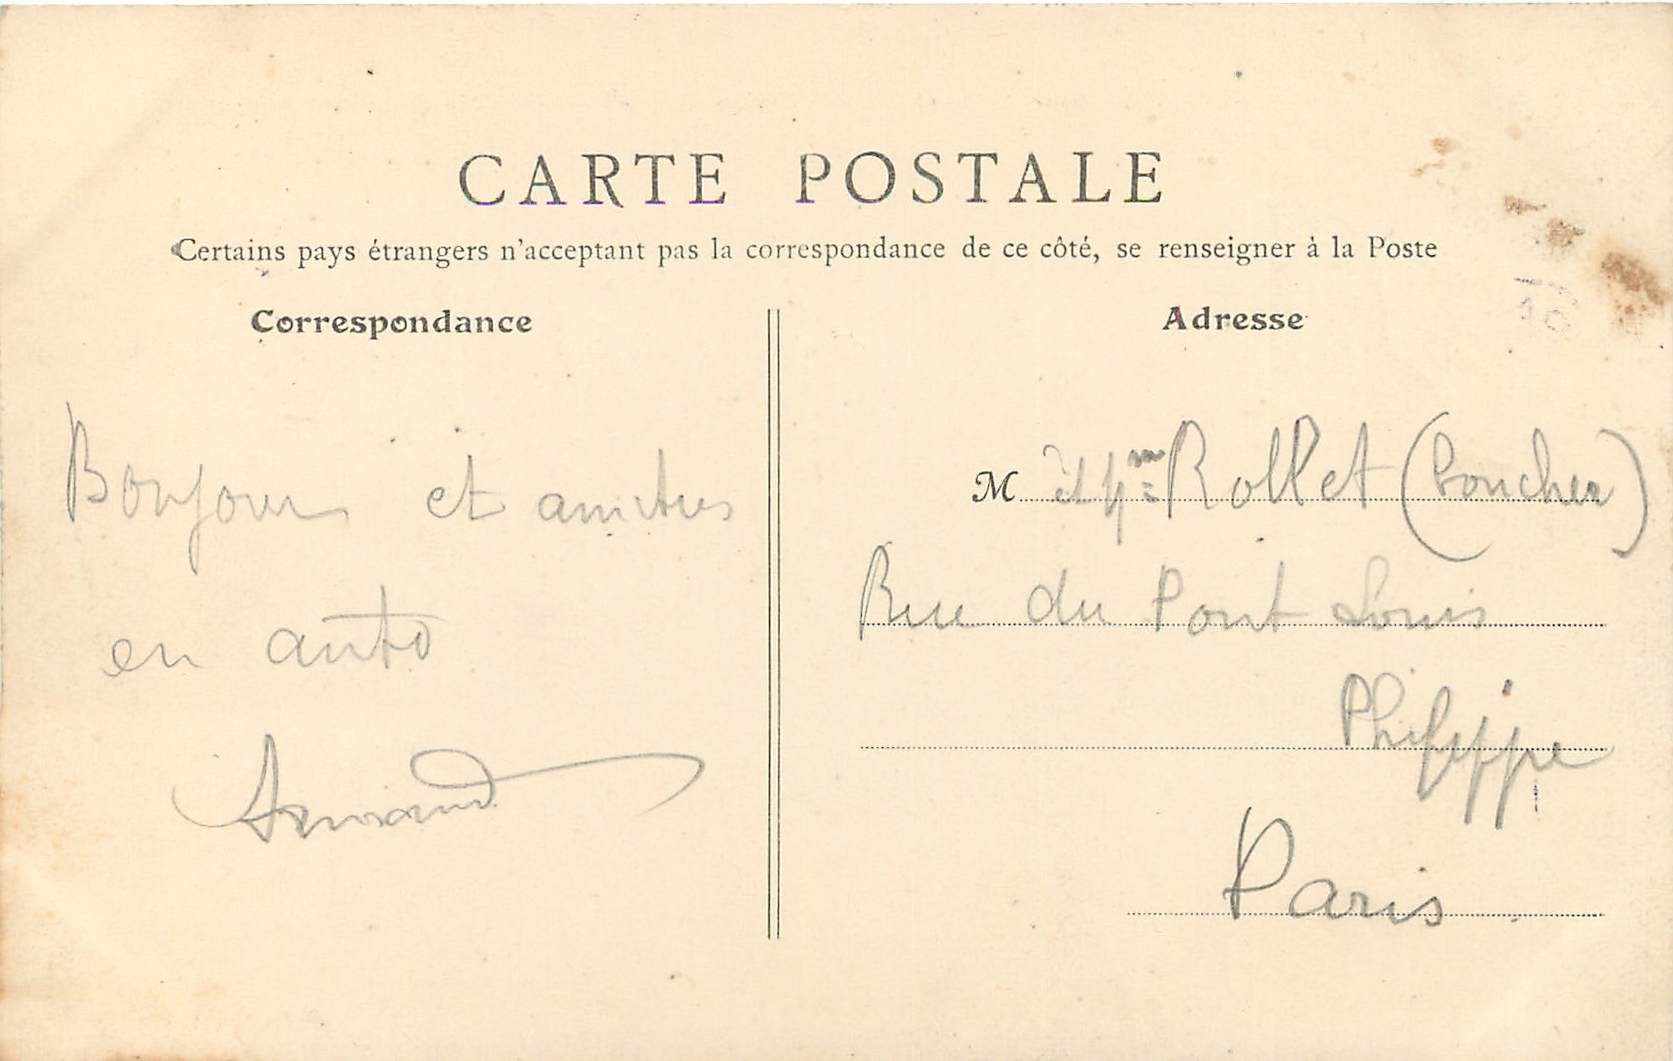 CARTE POSTALE
Certains pays étrangers n'acceptant pas la correspondance de ce côté, se renseigner à la Poste
Correspondance
Adresse
Bonjour et amitiés
en auto
Armand
M et Mme Rollet (boucher)
Rue du Pont Louis
Philippe
Paris